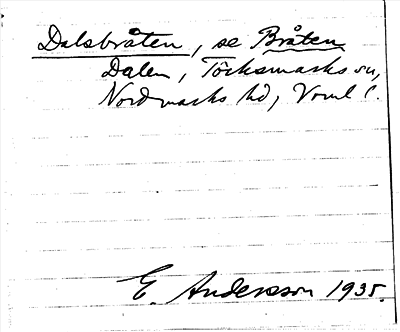 Dalsbråten, se Bråten
Dalen, Töcksmarks sn,
Nordmarks hd, Vrml l.
E. Andersson 1935.